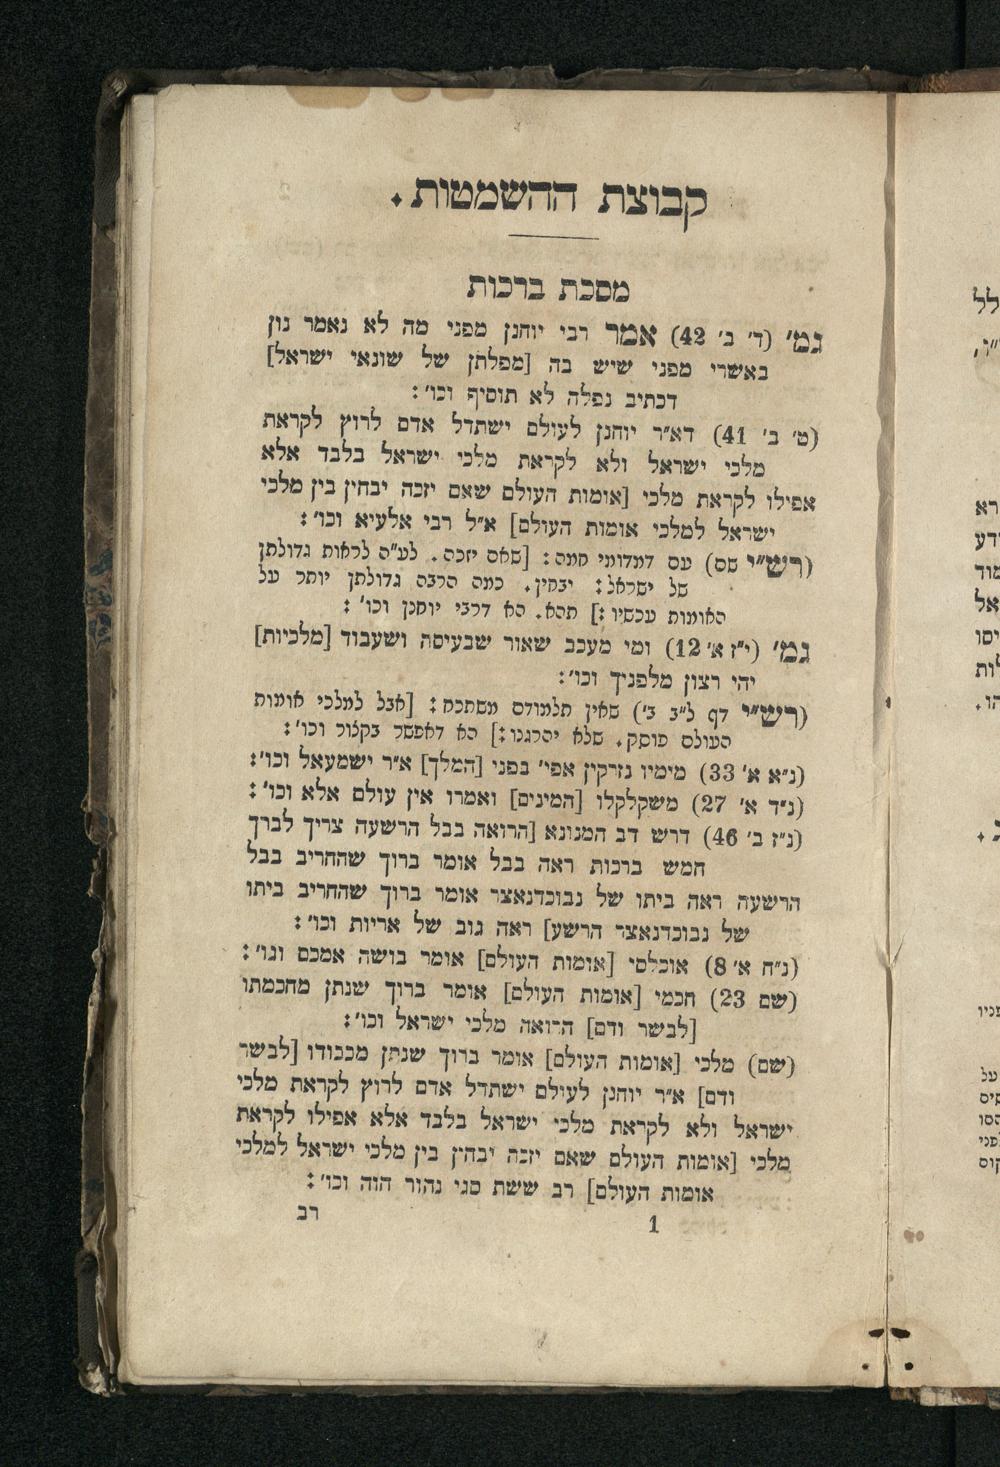 קבוצת ההשמטות.
מסכת ברכות
גמ' (ד' ב' 42) אמר רבי יוחנן מפני מה לא נאמר נון
באשרי מפני שיש בה [מפלתן של שונאי ישראל]
דכתיב נפלה לא תוסיף וכו':
(ט' ב' 41) דא"ר יוחנן לעולם ישתדל אדם לרוץ לקראת
מלכי ישראל ולא לקראת מלכי ישראל בלבד אלא
אפילו לקראת מלכי [אומות העולם שאם יזכה יבחין בין מלכי
ישראל למלכי אומות העולם] א"ל רבי אלעיא וכו':
(רש"י שם) עם דמדומי חמה: [שאם יזכה. לע"ה לראות גדולתן
של ישראל: יבחין. כמה הרבה גדולתן יותר על
האומות עכשיו:] תהא. הא דרבי יוחנן וכו':
גמ' (י"ז א' 12) ומי מעכב שאור שבעיסה ושעבוד [מלכיות]
יהי רצון מלפניך וכו':
(רש"י דף ל"ב ב') שאין תלמודם משתכח: [אבל למלכי אומות
העולם פוסק. שלא יהרגנו:] הא דאפשר בקצור וכו':
(נ"א א' 33) מימיו נזרקין אפי' בפני [המלך] א"ר ישמעאל וכו':
(נ"ד א' 27) משקלקלו [המינים] ואמרו אין עולם אלא וכו':
(נ"ז ב' 46) דרש רב המנונא [הרואה בבל הרשעה צריך לברך
חמש ברכות ראה בבל אומר ברוך שהחריב בבל
הרשעה ראה ביתו של נבוכדנאצר אומר ברוך שהחריב ביתו
של נבוכדנאצר הרשע] ראה גוב של אריות וכו':
(נ"ח א' 8) אוכלסי [אומות העולם] אומר בושה אמכם וגו':
(שם 23) חכמי [אומות העולם] אומר ברוך שנתן מחכמתו
[לבשר ודם] הרואה מלכי ישראל וכו':
(שם) מלכי [אומות העולם] אומר ברוך שנתן מכבודו [לבשר
ודם] א"ר יוחנן לעולם ישתדל אדם לרוץ לקראת מלכי
ישראל ולא לקראת מלכי ישראל בלבד אלא אפילו לקראת
מלכי [אומות העולם שאם יזכה יבחין בין מלכי ישראל למלכי
אומות העולם] רב ששת סגי נהור הוה וכו':
1 רב